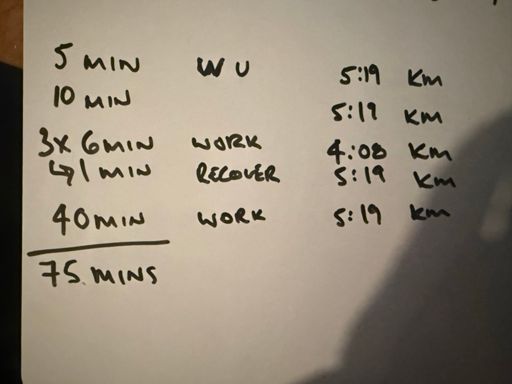 5 MIN WU 5:19 KM
10 MIN 5:19 KM
3X 6 MIN WORK 4:08 KM
↳ 1 MIN RECOVER 5:19 KM
40 MIN WORK 5:19 KM
75 MINS